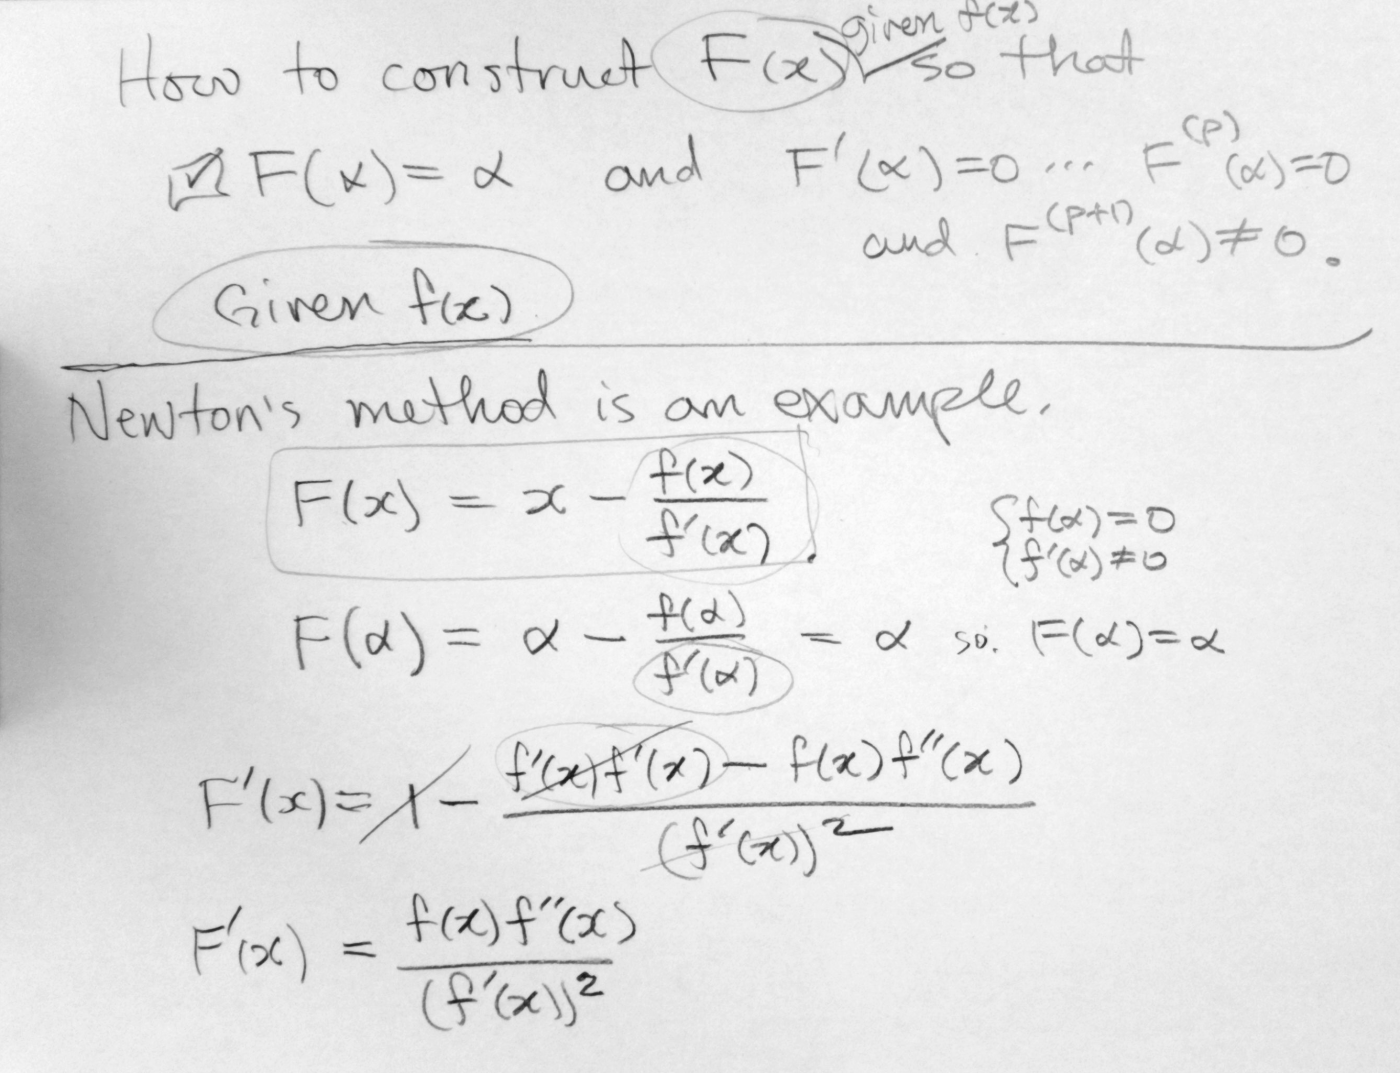 How to construct F(x) given f(x) so that
☑ F(α) = α and F'(α)=0 ... F^(p)(α)=0
and F^(p+1)(α)≠0.
Given f(x)
Newton's method is an example.
F(x) = x - f(x)/f'(x).
{f(α)=0
{f'(α)≠0
F(α) = α - f(α)/f'(α) = α so. F(α)=α
F'(x) = 1 - (f'(x)f'(x) - f(x)f''(x))/(f'(x))²
F'(x) = f(x)f''(x)/(f'(x))²